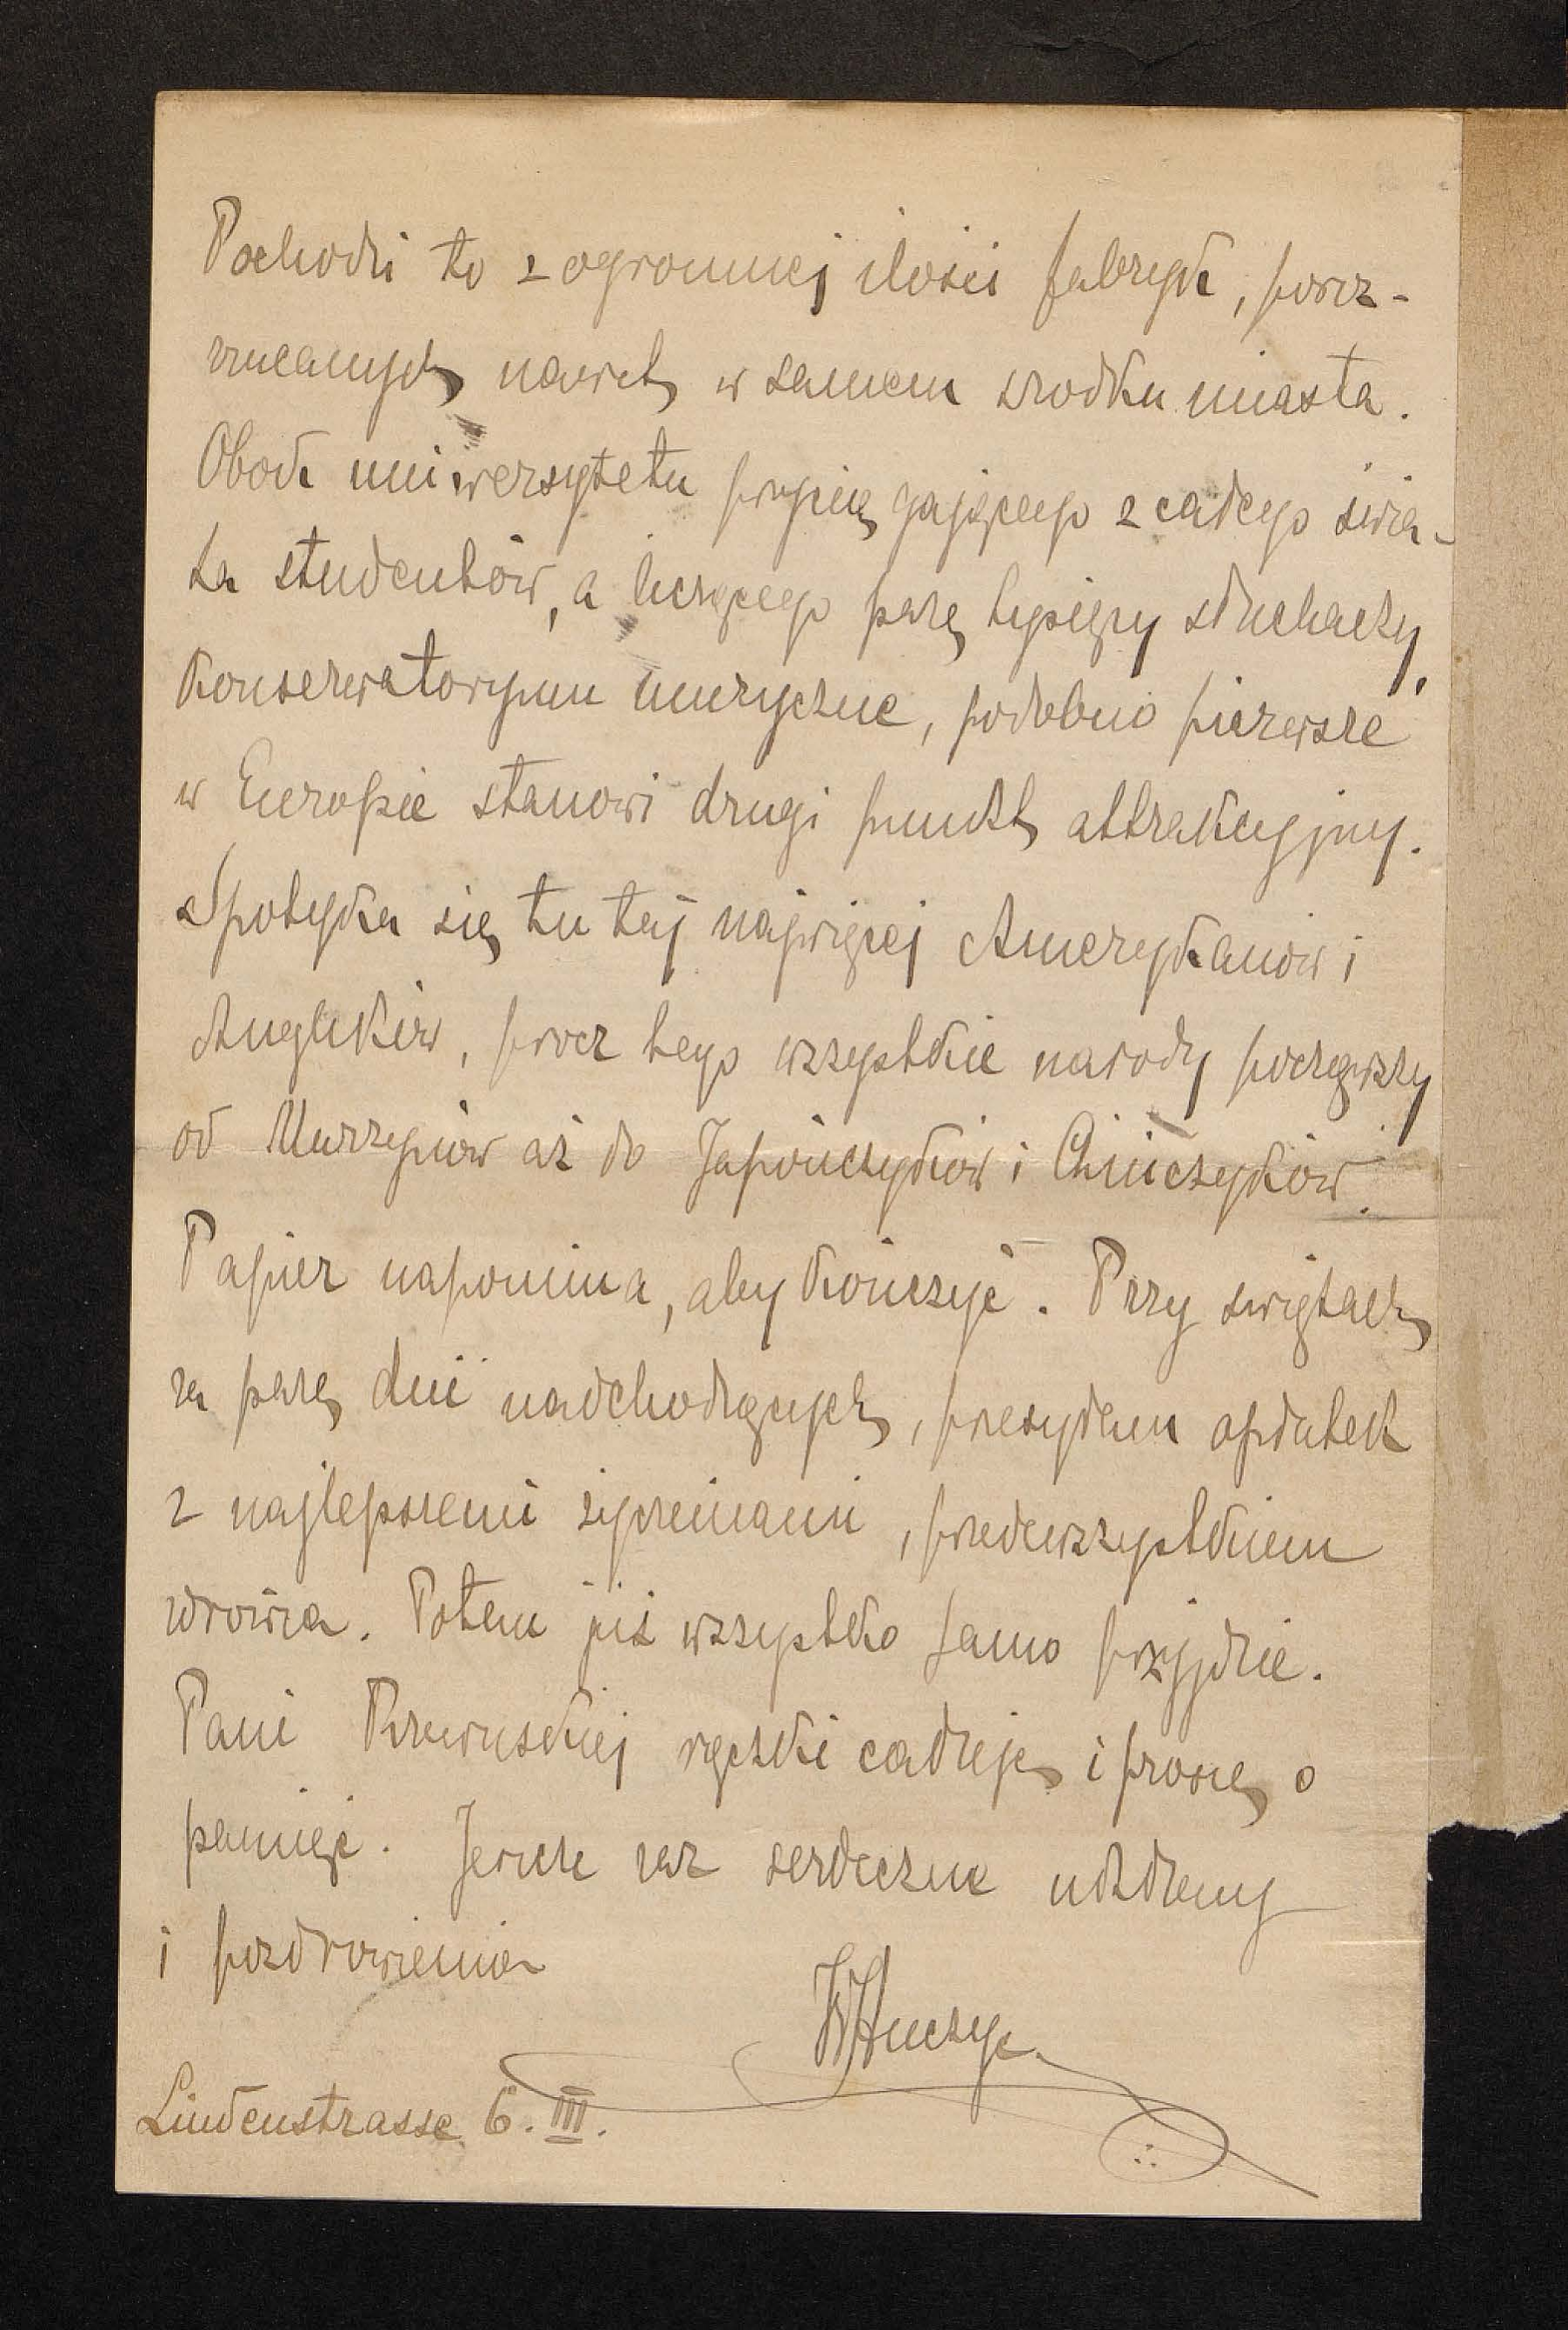 Pochodzi to z ogromnej ilości fabryk, poroz-
rzucanych nawet w samem środku miasta.
Obok uniwersytetu przyciągającego z całego świa-
ta studentów, a liczącego parę tysięcy słuchaczy,
Konserwatoryum muzyczne, podobno pierwsze
w Europie stanowi drugi punkt attrakcyjny.
Spotyka się tutaj najwięcej Amerykanów i
Anglików, prócz tego wszystkie narody począwszy
od Murzynów aż do Japończyków i Chińczyków.
Papier napomina, aby kończyć. Przy świętach
za parę dni nadchodzących, przesyłam opłatek
z najlepszemi życzeniami, przedewszystkiem
zdrowia. Potem już wszystko samo przyjdzie.
Pani rączki całuję i proszę o
pamięć. Jeszcze raz serdeczne ukłony
i pozdrowienia
Lindenstrasse 6. III.